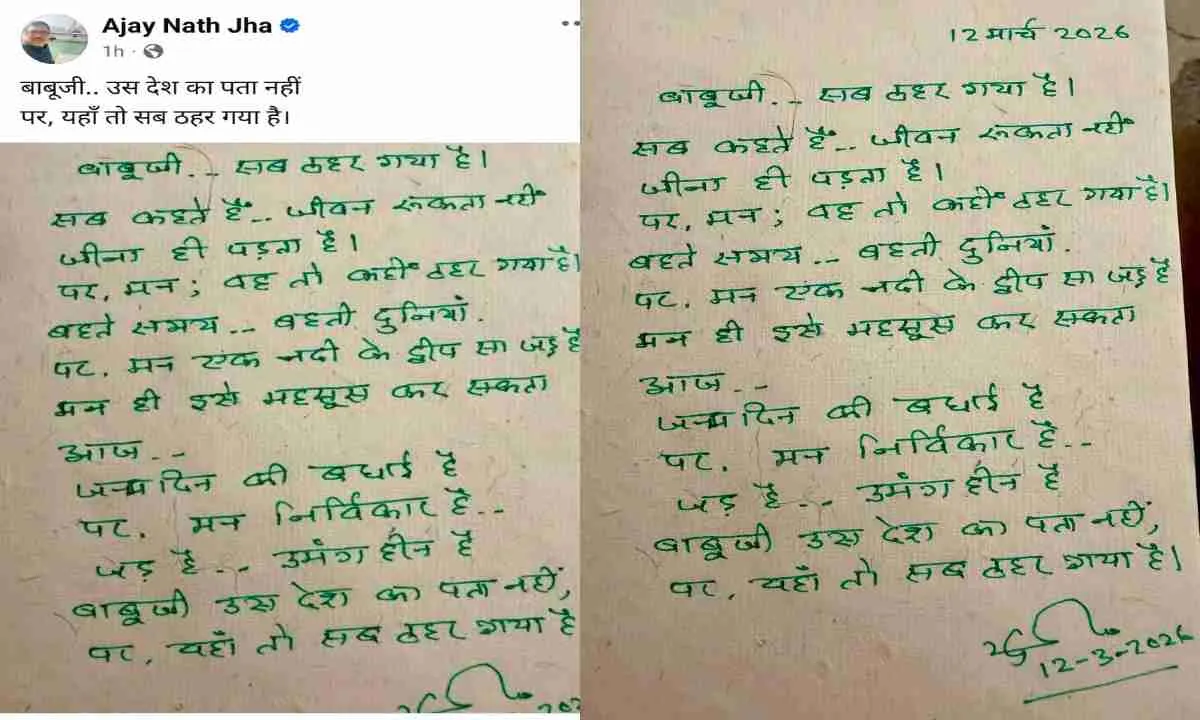 Ajay Nath Jha
1h
बाबूजी.. उस देश का पता नहीं
पर, यहाँ तो सब ठहर गया है।
बाबूजी... सब ठहर गया है।
सब कहते हैं.. जीवन रूकता नहीं
जीना ही पड़ता है।
पर, मन; वह तो कहीं ठहर गया है।
बहते समय... बहती दुनियां.
पर. मन एक नदी के द्वीप सा जड़ है
मन ही इसे महसूस कर सकता
आज..
जन्मदिन की बधाई है
पर. मन निर्विकार है..
जड़ है... उमंग हीन है
बाबूजी उस देश का पता नहीं,
पर, यहाँ तो सब ठहर गया है
12 मार्च 2026
बाबूजी... सब ठहर गया है।
सब कहते हैं.. जीवन रूकता नहीं
जीना ही पड़ता है।
पर, मन; वह तो कहीं ठहर गया है।
बहते समय... बहती दुनियां.
पर. मन एक नदी के द्वीप सा जड़ है
मन ही इसे महसूस कर सकता
आज..
जन्मदिन की बधाई है
पर. मन निर्विकार है..
जड़ है... उमंग हीन है
बाबूजी उस देश का पता नहीं,
पर, यहाँ तो सब ठहर गया है।
12-3-2026